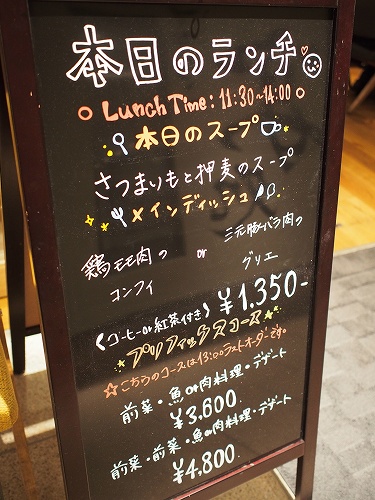 本日のランチ
Lunch Time: 11:30~14:00
本日のスープ
さつまいもと押麦のスープ
メインディッシュ
鶏モモ肉の or 三元豚バラ肉の
コンフィ グリエ
(コーヒーor紅茶付き) ¥1,350-
プリフィックスコース
☆こちらのコースは13:00ラストオーダーです。
前菜・魚or肉料理・デザート
¥3,600
前菜・前菜・魚or肉料理・デザート
¥4,800